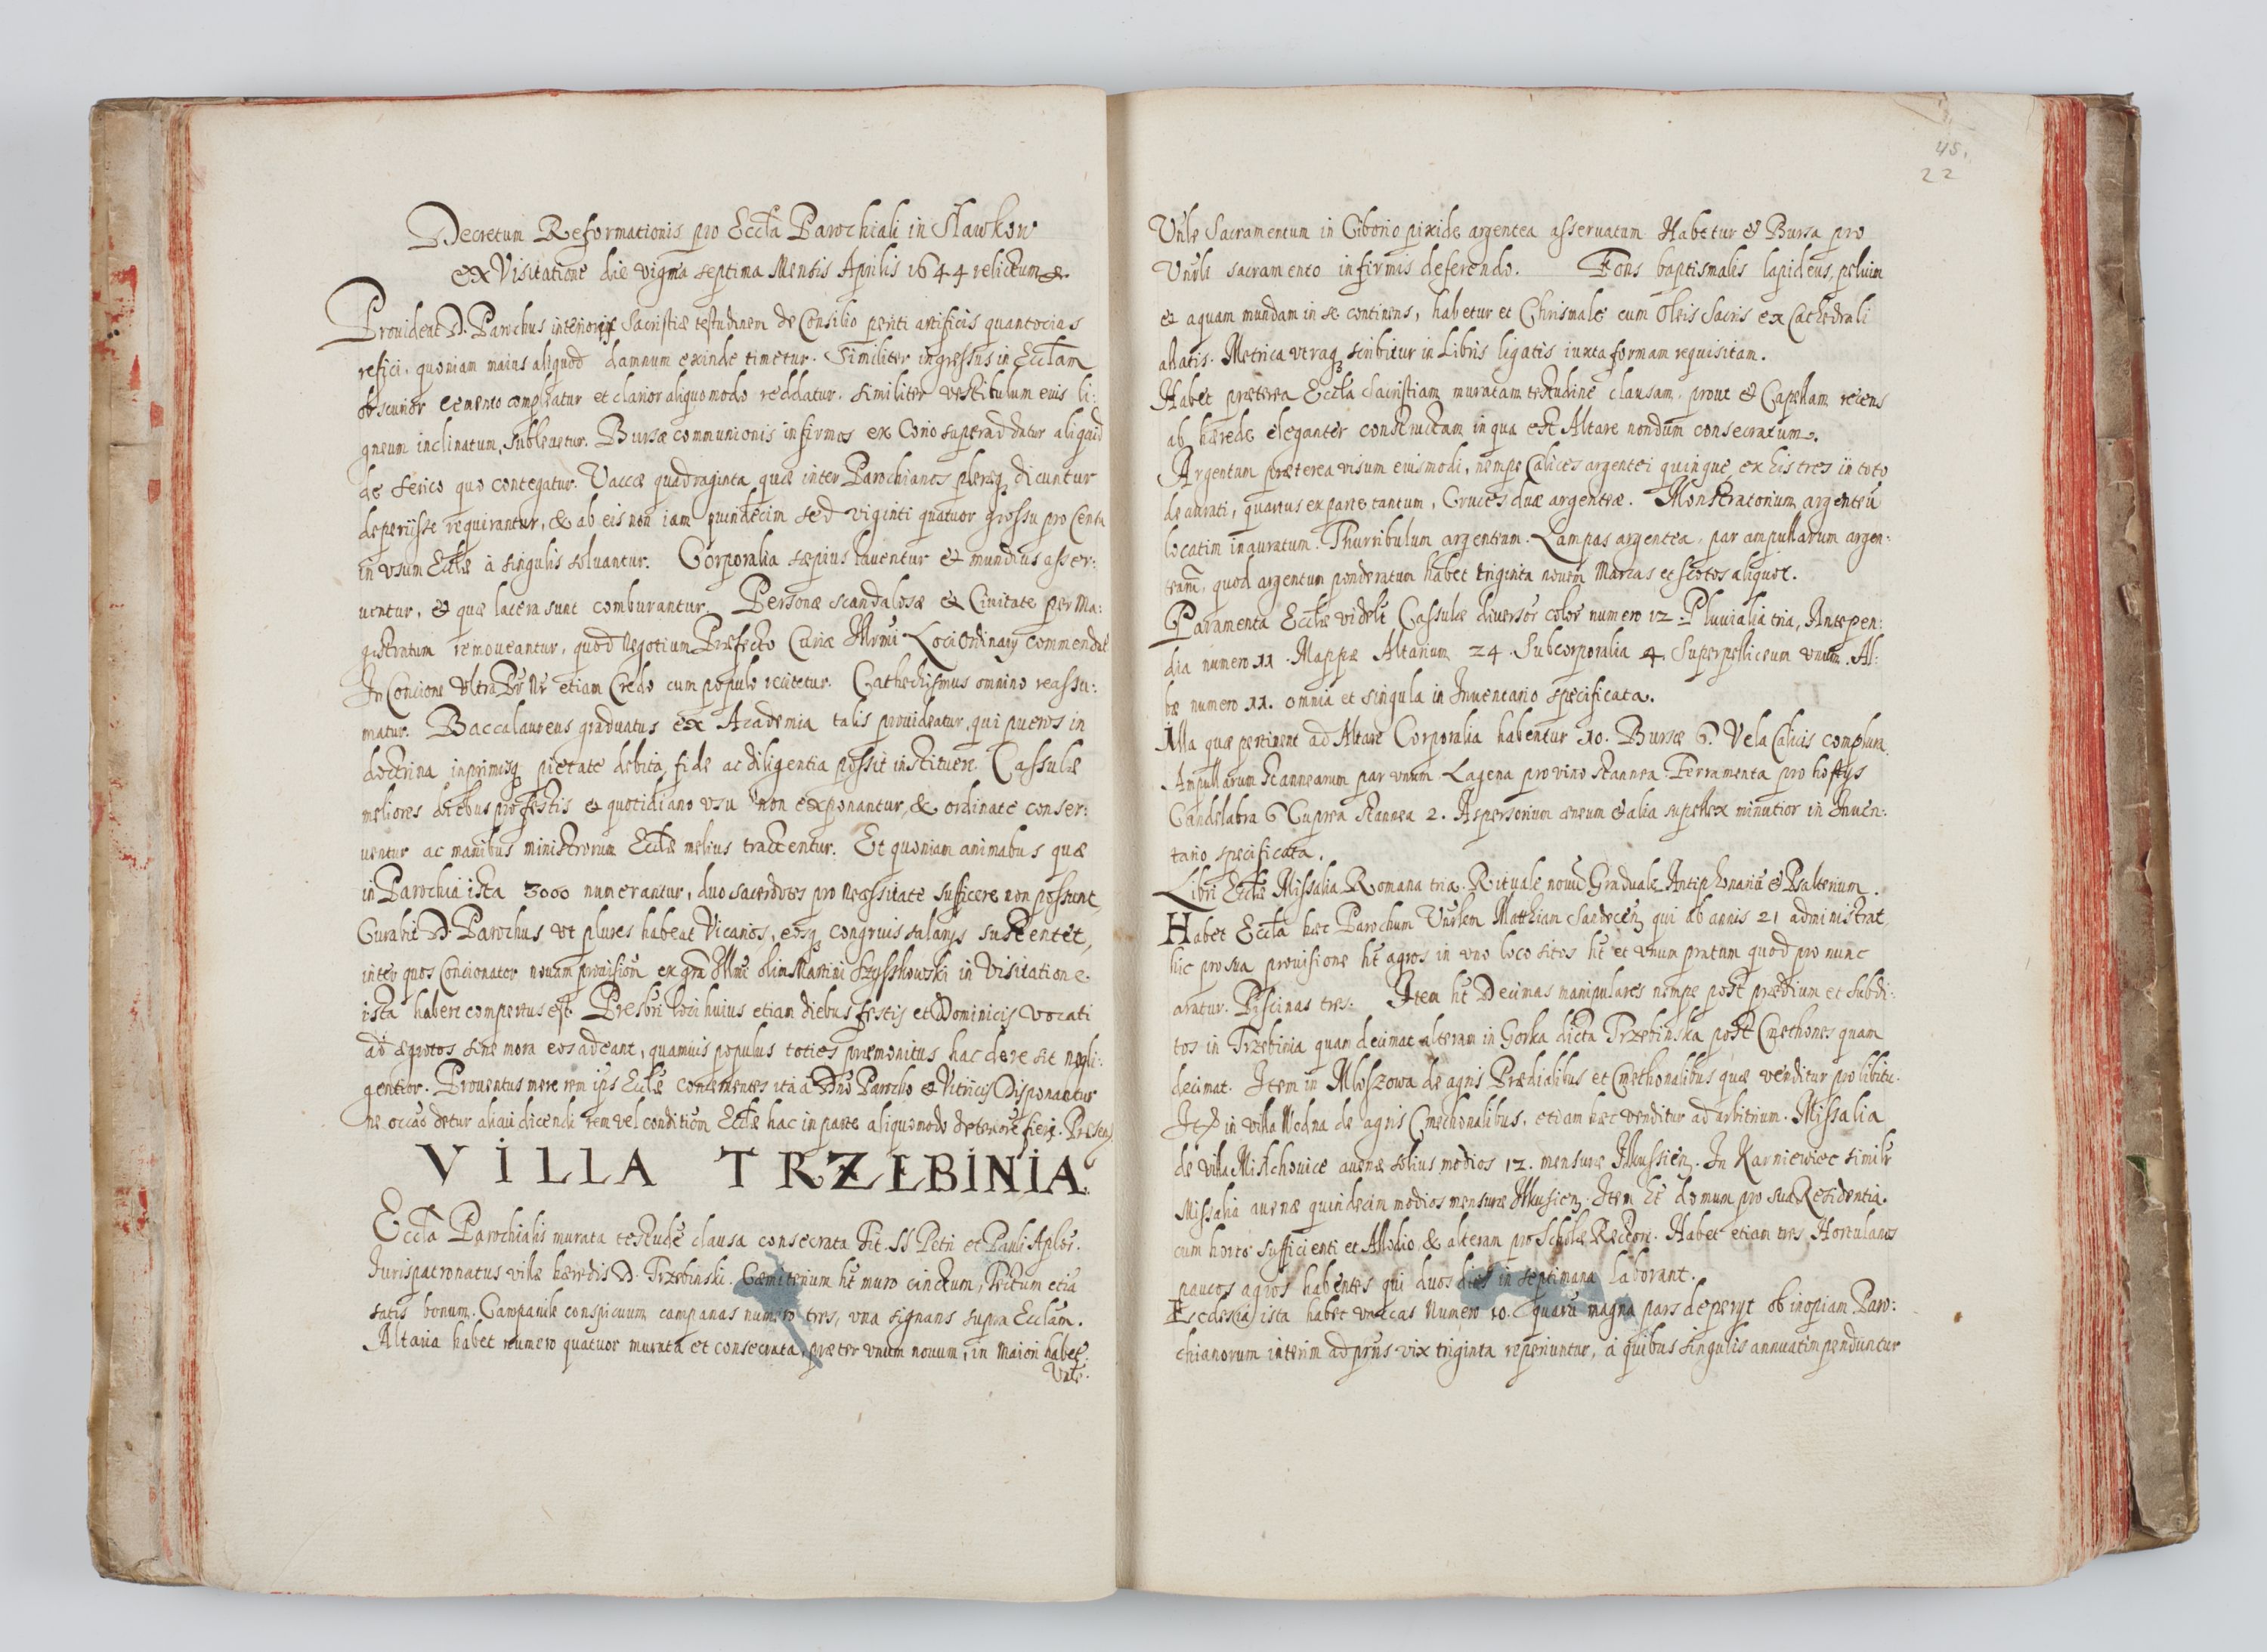 Decretum Reformationis pro Eccła Parochiali in Sławkow
ex Visitatione die vigma septima Mensis Aprilis 1644 relictum &.
Prouideat D. Parochus interioris Sacristiæ testudinem de Consilio periti artificis quantocias
refici, quoniam maius aliquod damnum exinde timetur. Similiter ingressus in Eccłam
obscurior cemento compleatur et clarior aliquomodo reddatur. similiter vestibulum eius li:
gneum inclinatum, subleuetur. Bursæ communionis infirmos ex Corio superaddatur aliquid
de serico quo contegatur. Vaccæ quadraginta quæ inter Parochianos pleræq dicuntur
deperijsse requirantur, & ab eis non iam quindecim sed viginti quatuor grossu pro Censu
in vsum Eccłæ à singulis soluantur. Corporalia sæpius lauentur et mundius asser:
uentur, et quæ lacera sunt comburantur. Personæ scandalosæ ex Ciuitate per Ma:
gistratum remoueantur, quod negotium Præfecto Curiæ Illrmi Loci Ordinarij commendat
In Concione vltra Pr Nr etiam Credo cum populo recitetur. Cathechismus omnino reassu:
matur. Baccalaureus graduatus ex Academia talis prouideatur, qui pueros in
doctrina inprimisq pietate debita fide ac diligentia possit instituere. Cassulæ
meliores diebus profestis et quotidiano vsu non exponantur, & ordinate conser:
uentur ac manibus ministrorum Eccłæ melius tractentur. Et quoniam animabus quæ
in Parochia ista 3000 numerantur, duo sacerdotes pro necessitate sufficere non possunt,
Curabit D. Parochus, vt plures habeat Vicarios, eosq congruis salarijs sustentet,
inter quos Concionator nouam prouisionē ex gra Illmi olim Martini Szyszkowski in Visitatione
ista habere compertus est. Presbri loci huius etiam diebus festis et Dominicis vocati
ad ægrotos sine mora eos adeant, quamuis populus toties præmonitus hac de re sit negli:
gentior. Prouentus mere rem ipś Eccłæ concernentes ita à Dno Parocho et Vitricis Disponantur
ne occaō detur alicui dicendi rem vel conditionē Eccłæ hac in parte aliquomodo deteriorē fieri. Præsens
VILLA TRZEBINIA.
Eccła Parochialis murata testude clausa consecrata tit. SS Petri et Pauli Aplor.
Jurispatronatus villæ hæredis D. Trzebinski. Cæmiterium ht muro cinctum, Tectum etiā
satis bonum. Campanile conspicuum campanas numero tres, vna signans supra Ecclam.
Altaria habet numero quatuor murata et consecrata, præter vnum nouum, in maiori habet
Vnle.
45.
22
Vnle Sacramentum in Ciborio pixide argentea asseruatum Habetur et Bursa pro
Vnrli sacramento infirmis deferendo. Fons baptismalis lapideus, peluim
et aquam mundam in se continens, habetur et Chrismale cum Oleis Sacris ex Cathedrali
allatis. Metrica vtraq scribitur in Libris ligatis iuxta formam requisitam.
Habet præterea Eccła sacristiam muratam testudine clausam, prout et Capellam recens
ab hærede eleganter constructam in qua est Altare nondum consecratum.
Argentum præterea visum eiusmodi, nempe Calices argentei quinque, ex his tres in toto
deaurati, quartus ex parte tantum, Cruces duæ argenteæ. Monstratorium argenteū
locatim inauratum. Thurribulum argenteum. Lampas argentea, par ampullarum argen:
tearū, quod argentum ponderatum habet triginta nouem Marcas et scotos aliquot.
Paramenta Eccłæ videlt Cassulæ diuersor color numero 12. Pluuialia tria, Antepen:
dia numero 11. Mappæ Altarium 24. Subcorporalia 4. Superpelliceum vnum. Al:
bæ numero 11. omnia et singula in Inuentario specificata.
Illa quæ pertinent ad Altare Corporalia habentur 10. Bursæ 6. Vela Calicis complura.
Ampullarum stannearum par vnum Lagena pro vino stannea Ferramenta pro hostijs
Candelabra 6 Cuprea stannea 2. Aspersorium æneum et alia supellex minutior in Inuen:
tario specificata.
Libri Eccłæ Missalia Romana tria. Rituale nouū Graduale Antiphonariū et Psalterium.
Habet Eccła hæc Parochum Vnrlem Matthiam Sandecen qui ab annis 21 administrat,
hic pro sua prouisione ht agros in vno loco sitos ht et vnum pratum quod pro nunc
aratur. Piscinas tres. Item ht Decimas manipulares nempe post prædium et subdi:
tos in Trzebinia quam decimat alteram in Gorka dicta Trzebinska post Cmethones quam
decimat. Item in Mloszowa de agris Prædialibus et Cmethonalibus quæ venditur pro libitu.
It in villa Wodna de agris Cmethonalibus, etiam hæc venditur ad arbitrium. Missalia
de villa Mistchouice auenæ solius modios 12. mensuræ Ilkussien. In Karniewice similr
Missalia auenæ quindecim modios mensuræ Ilkusien. Item ht domum pro sua Residentia.
cum horto sufficienti et Allodio, & alteram pro Scholæ Rectore. Habet etiam tres Hortulanos
paucos agros habentes qui duos dies in septimana laborant.
Ecclesia ista habet vaccas Numero 10. quarū magna pars deperijt ob inopiam Paro:
chianorum interim ad prns vix triginta reperiuntur, à quibus singulis annuatim penduntur